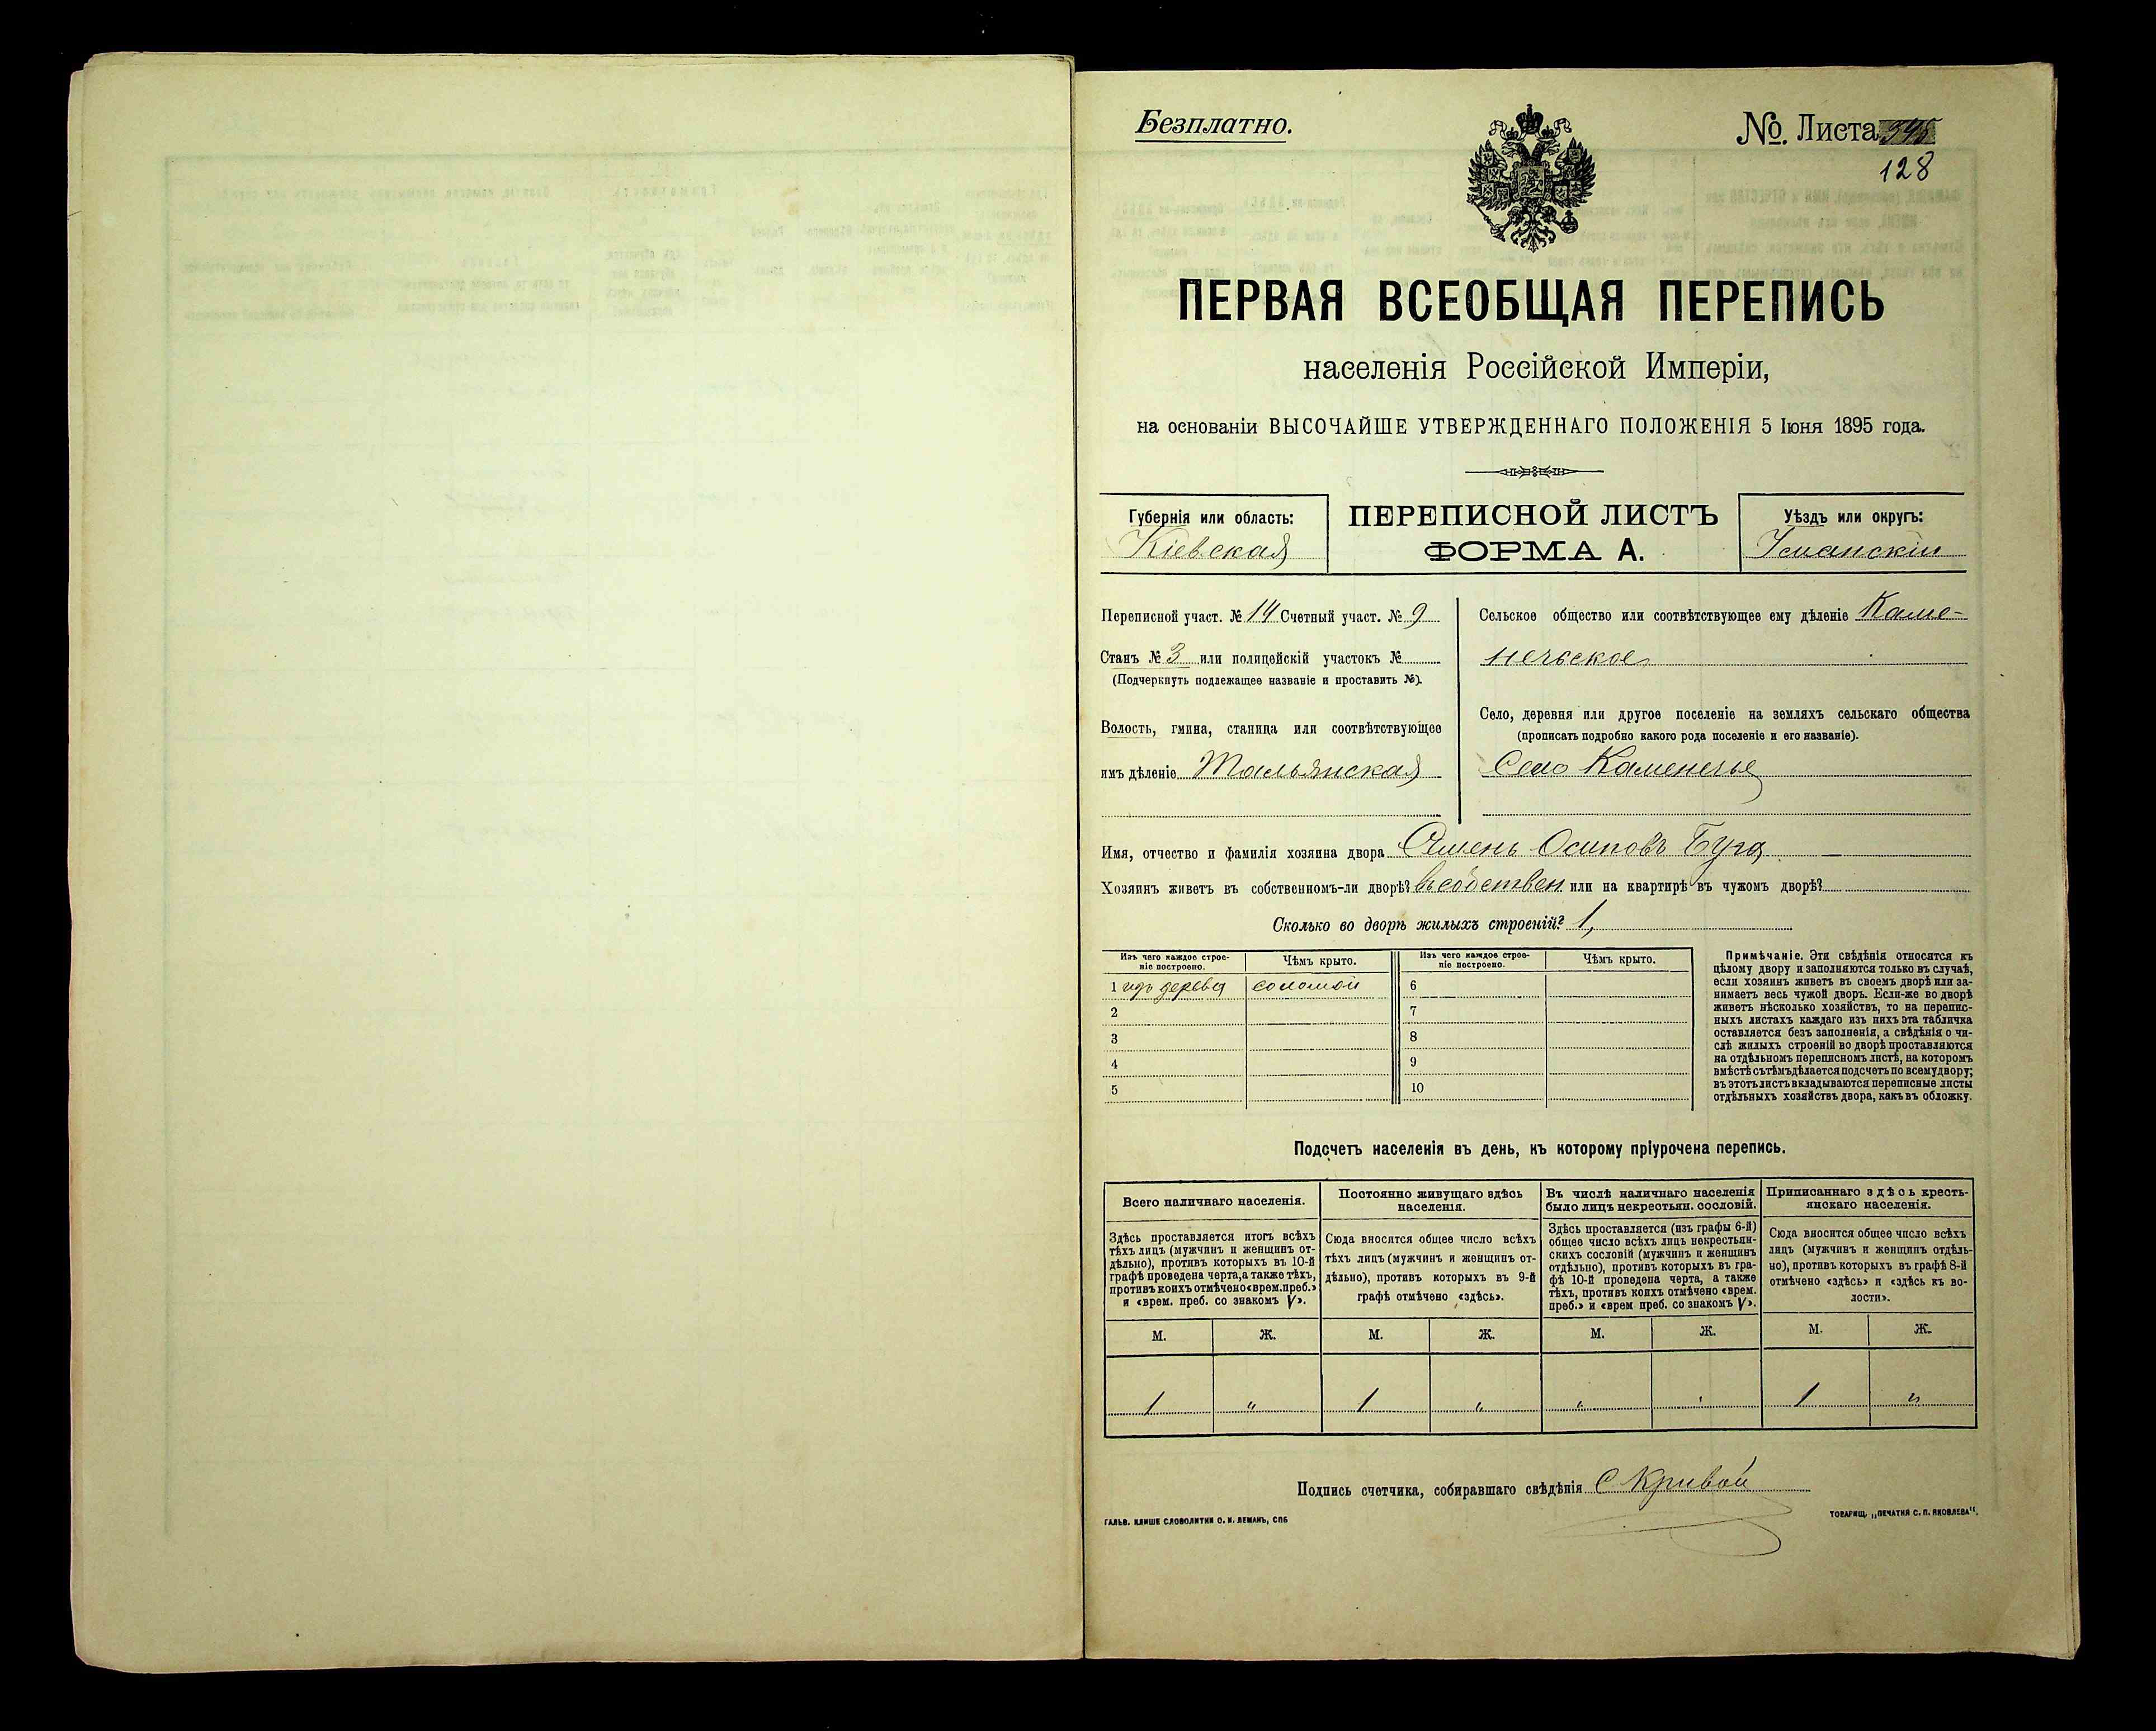 Безплатно.
№. Листа 345
128
ПЕРВАЯ ВСЕОБЩАЯ ПЕРЕПИСЬ
населенія Россійской Имперіи,
на основаніи ВЫСОЧАЙШЕ УТВЕРЖДЕННАГО ПОЛОЖЕНІЯ 5 Іюня 1895 года.
Губернія или область:
Кіевская
ПЕРЕПИСНОЙ ЛИСТЪ
ФОРМА А.
Уѣздъ или округъ:
Уманскій
Переписной участ. № 14 Счетный участ. № 9
Станъ № 3 или полицейскій участокъ №
(Подчеркнуть подлежащее названіе и проставить №).
Волость, гмина, станица или соотвѣтствующее
имъ дѣленіе Тальянская
Сельское общество или соотвѣтствующее ему дѣленіе Каме-
нечьское
Село, деревня или другое поселеніе на земляхъ сельскаго общества
(прописать подробно какого рода поселеніе и его названіе).
Село Каменечье
Имя, отчество и фамилія хозяина двора Семенъ Осиповъ Буга
Хозяинъ живетъ въ собственномъ-ли дворѣ? въ собствен или на квартирѣ въ чужомъ дворѣ?
Сколько во дворѣ жилыхъ строеній? 1,
Изъ чего каждое строе-
ніе построено.
Чѣмъ крыто.
Изъ чего каждое строе-
ніе построено.
Чѣмъ крыто.
1 изъ дерева соломой 6
2 7
3 8
4 9
5 10
Примѣчаніе. Эти свѣдѣнія относятся къ
цѣлому двору и заполняются только въ случаѣ,
если хозяинъ живетъ въ своемъ дворѣ или за-
нимаетъ весь чужой дворъ. Если-же во дворѣ
живетъ нѣсколько хозяйствъ, то на перепис-
ныхъ листахъ каждаго изъ нихъ эта табличка
оставляется безъ заполненія, а свѣдѣнія о чи-
слѣ жилыхъ строеній во дворѣ проставляются
на отдѣльномъ переписномъ листѣ, на которомъ
вмѣстѣ съ тѣмъ дѣлается подсчетъ по всему двору;
въ этотъ листъ вкладываются переписные листы
отдѣльныхъ хозяйствъ двора, какъ въ обложку.
Подсчетъ населенія въ день, къ которому пріурочена перепись.
Всего наличнаго населенія.
Здѣсь проставляется итогъ всѣхъ
тѣхъ лицъ (мужчинъ и женщинъ от-
дѣльно), противъ которыхъ въ 10-й
графѣ проведена черта, а также тѣхъ,
противъ коихъ отмѣчено «врем. преб.»
и «врем. преб. со знакомъ V».
Постоянно живущаго здѣсь
населенія.
Сюда вносится общее число всѣхъ
тѣхъ лицъ (мужчинъ и женщинъ от-
дѣльно), противъ которыхъ въ 9-й
графѣ отмѣчено «здѣсь».
Въ числѣ наличнаго населенія
было лицъ некрестьян. сословій.
Здѣсь проставляется (изъ графы 6-й)
общее число всѣхъ лицъ некрестьян-
скихъ сословій (мужчинъ и женщинъ
отдѣльно), противъ которыхъ въ гра-
фѣ 10-й проведена черта, а также
тѣхъ, противъ коихъ отмѣчено «врем.
преб.» и «врем преб. со знакомъ V».
Приписаннаго здѣсь кресть-
янскаго населенія.
Сюда вносится общее число всѣхъ
лицъ (мужчинъ и женщинъ отдѣль-
но), противъ которыхъ въ графѣ 8-й
отмѣчено «здѣсь» и «здѣсь къ во-
лости».
М. Ж. М. Ж. М. Ж. М. Ж.
1 " 1 " " " 1 "
Подпись счетчика, собиравшаго свѣдѣнія С Кривой
ГАЛЬВ. КЛИШЕ СЛОВОЛИТНИ О. И. ЛЕМАНЪ, СПБ
ТОВАРИЩ. „ПЕЧАТНЯ С. П. ЯКОВЛЕВА“.